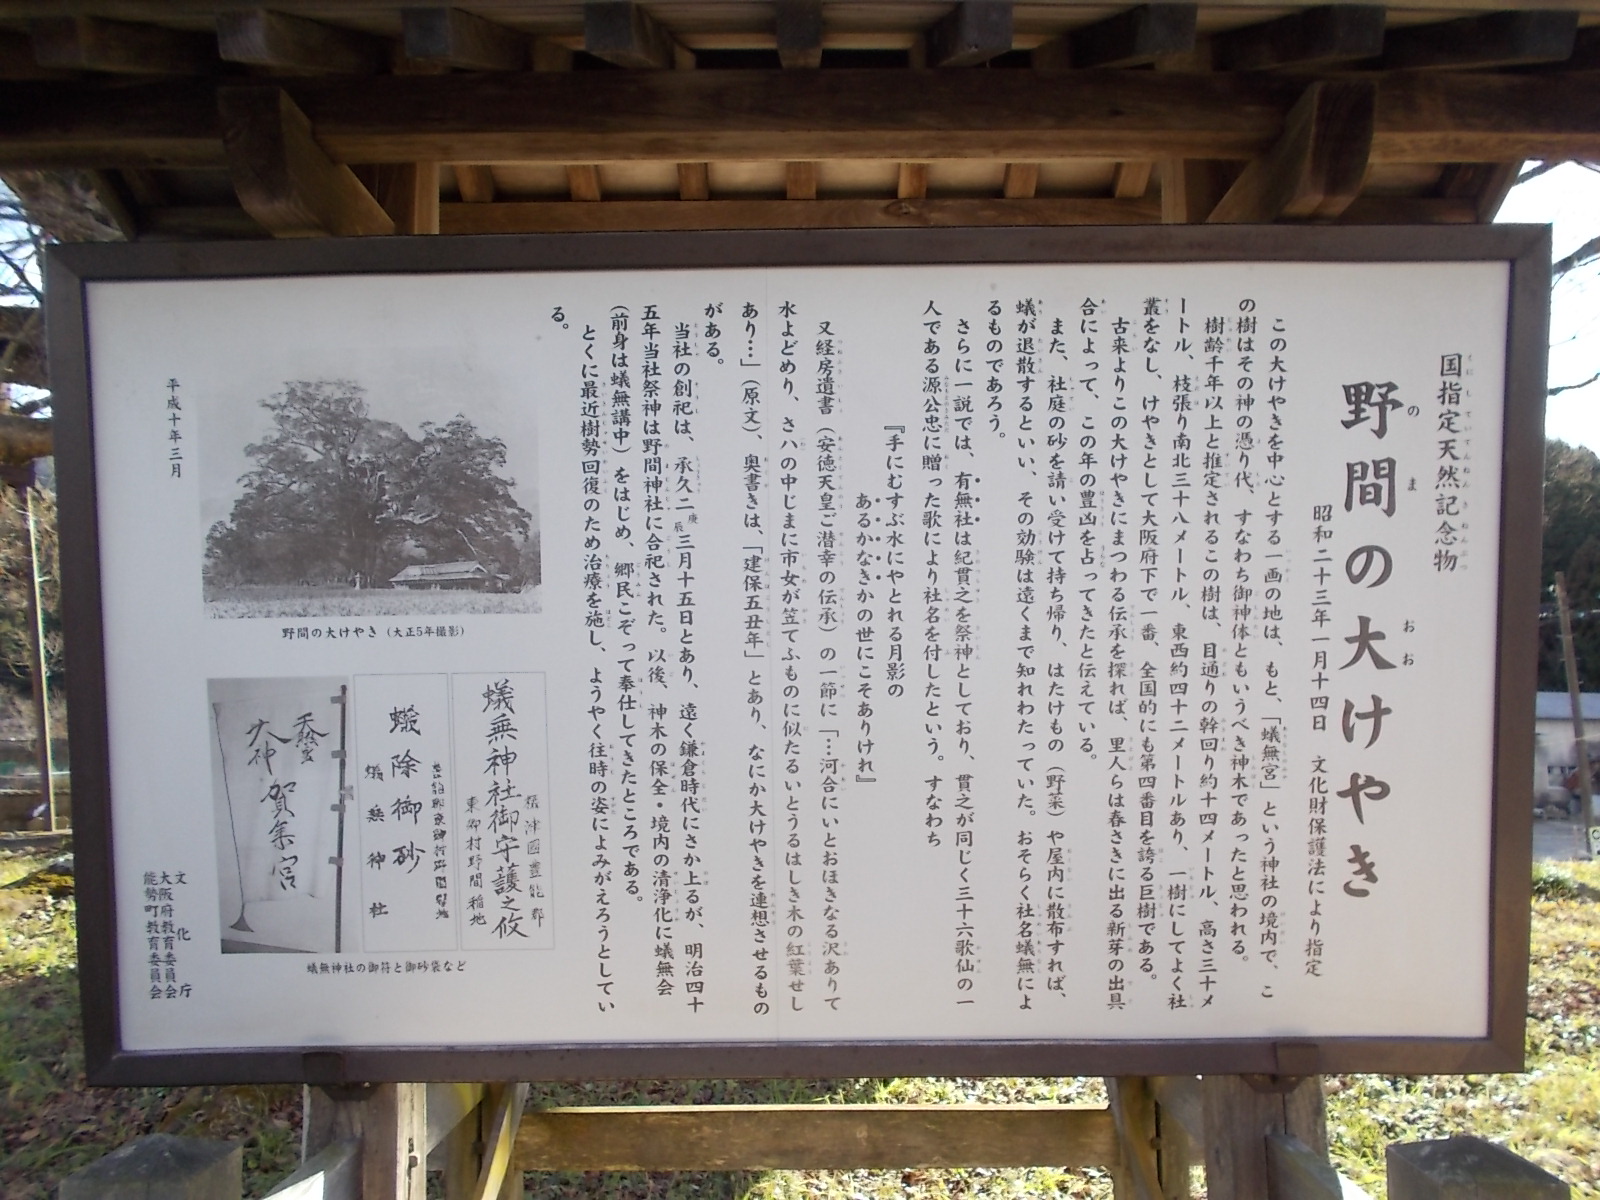 国指定天然記念物
野間の大けやき
昭和二十三年一月十四日 文化財保護法により指定
この大けやきを中心とする一画の地は、もと、「蟻無宮」という神社の境内で、こ
の樹はその神の憑り代、すなわち御神体ともいうべき神木であったと思われる。
樹齢千年以上と推定されるこの樹は、目通りの幹回り約十四メートル、高さ三十メ
ートル、枝張り南北三十八メートル、東西約四十二メートルあり、一樹にしてよく社
叢をなし、けやきとして大阪府下で一番、全国的にも第四番目を誇る巨樹である。
古来よりこの大けやきにまつわる伝承を探れば、里人らは春さきに出る新芽の出具
合によって、この年の豊凶を占ってきたと伝えている。
また、社庭の砂を請い受けて持ち帰り、はたけもの（野菜）や屋内に散布すれば、
蟻が退散するといい、その効験は遠くまで知れわたっていた。おそらく社名蟻無によ
るものであろう。
さらに一説では、有無社は紀貫之を祭神としており、貫之が同じく三十六歌仙の一
人である源公忠に贈った歌により社名を付したという。すなわち
『手にむすぶ水にやとれる月影の
あるかなきかの世にこそありけれ』
又経房遺書（安徳天皇ご潜幸の伝承）の一節に「…河合にいとおほきなる沢ありて
水よどめり、さハの中じまに市女が笠てふものに似たるいとうるはしき木の紅葉せし
あり…」（原文）、奥書きは、「建保五丑年」とあり、なにか大けやきを連想させるもの
がある。
当社の創祀は、承久二庚辰三月十五日とあり、遠く鎌倉時代にさか上るが、明治四十
五年当社祭神は野間神社に合祀された。以後、神木の保全・境内の清浄化に蟻無会
（前身は蟻無講中）をはじめ、郷民こぞって奉仕してきたところである。
とくに最近樹勢回復のため治療を施し、ようやく往時の姿によみがえろうとしてい
る。
野間の大けやき（大正5年撮影）
摂津國豊能郡
東郷村野間稲地
蟻無神社御守護之攸
蟻除御砂
蟻無神社
大神
賀集宮
蟻無神社の御符と御砂袋など
平成十年三月
文化庁
大阪府教育委員会
能勢町教育委員会